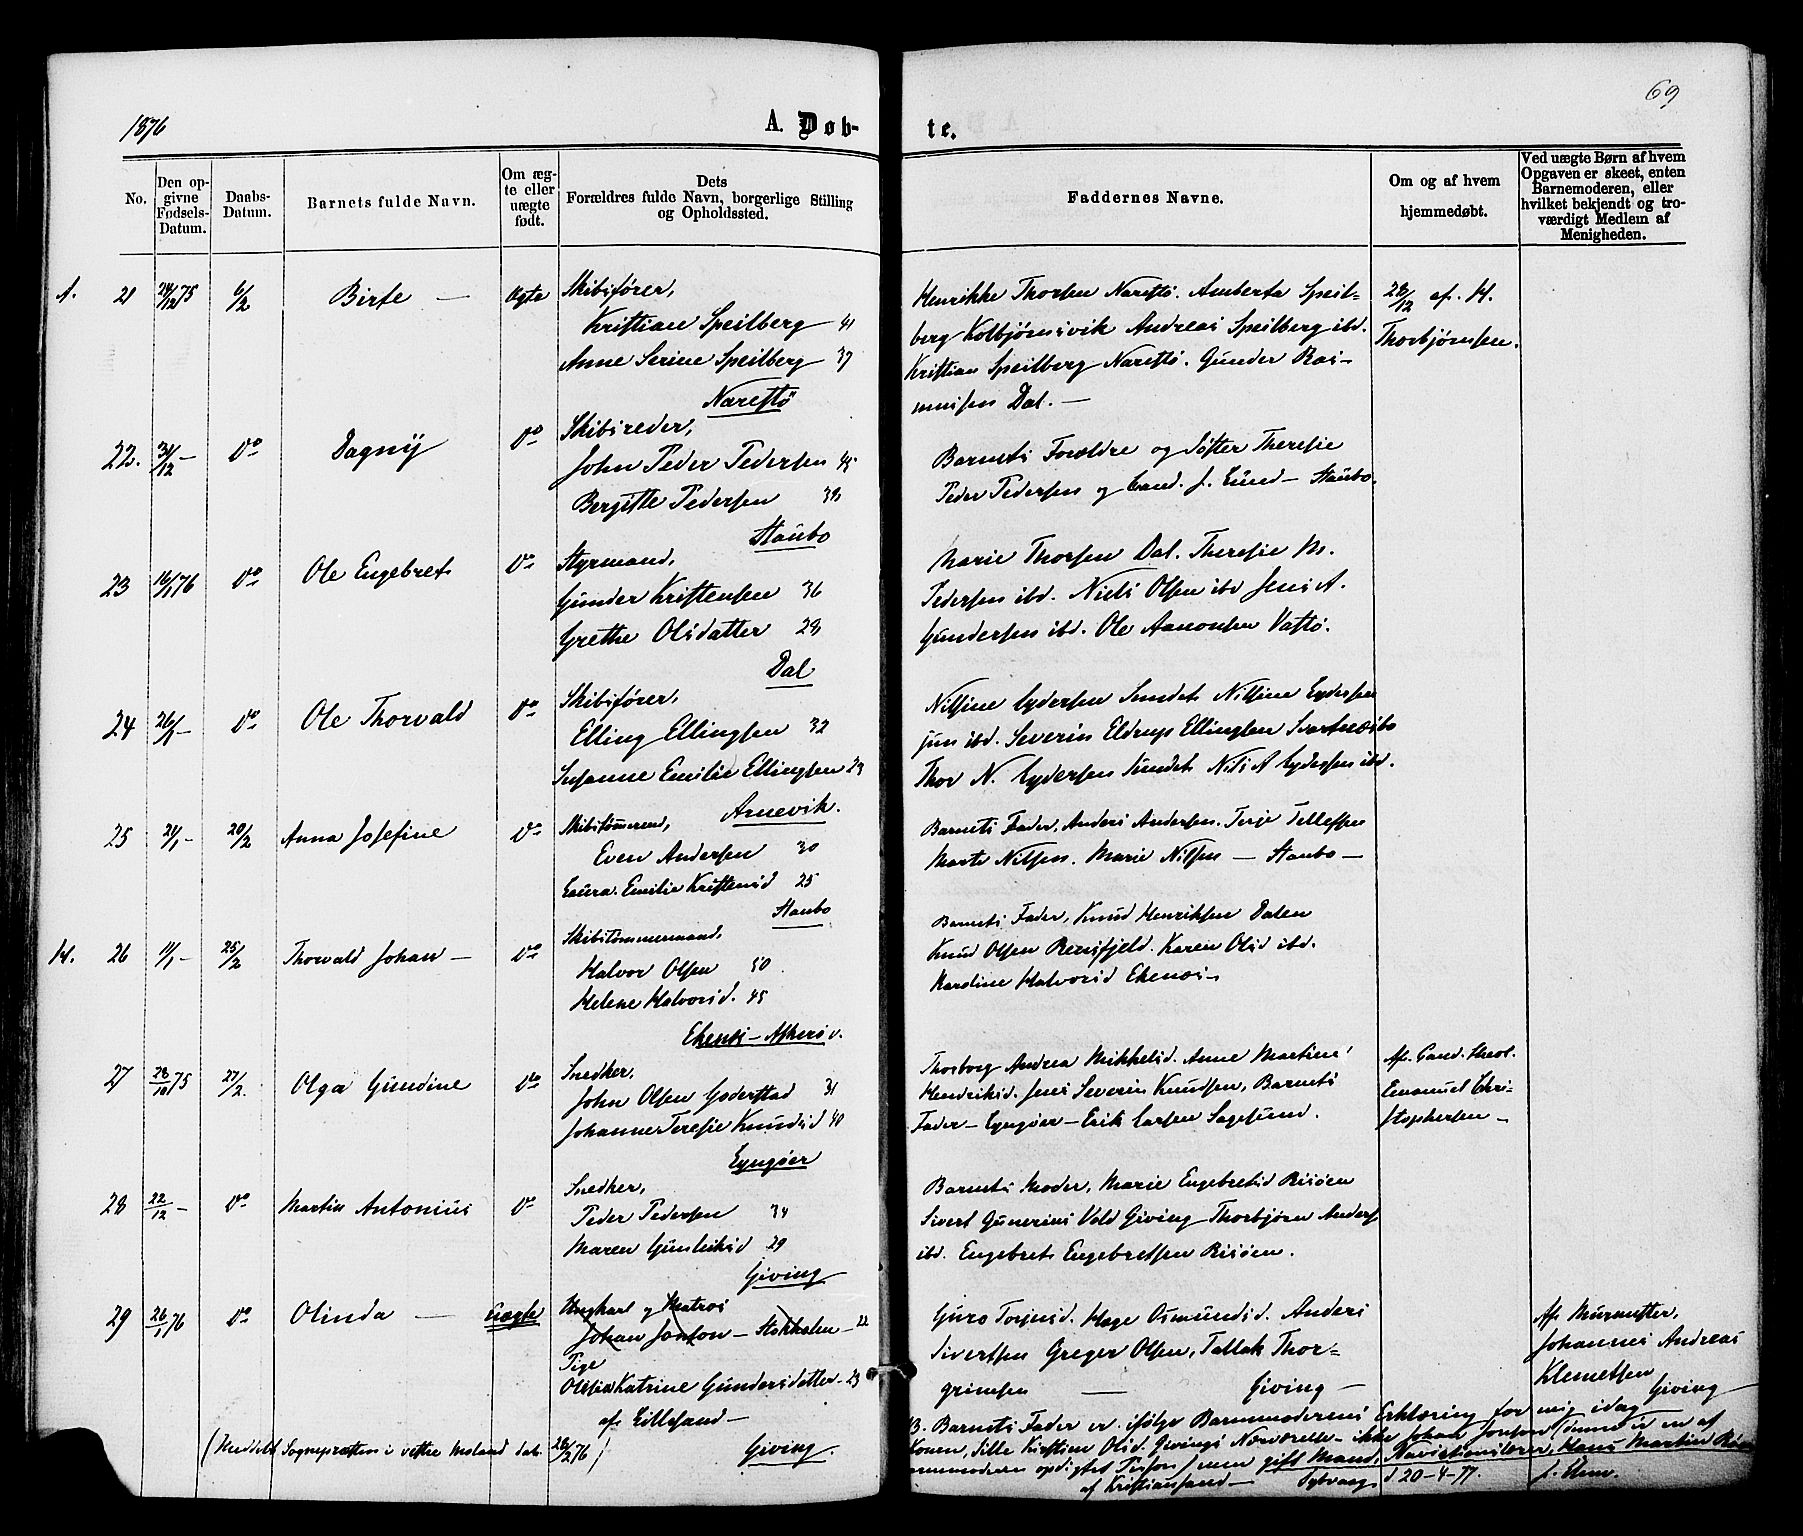 1876
A. Døb-
te.
69
No.
Den op-
givne
Fødsels-
Datum.
Daabs-
Datum.
Barnets fulde Navn.
Om æg-
te eller
uægte
født.
Dets
Forældres fulde Navn, borgerlige Stilling
og Opholdssted.
Faddernes Navne.
Om og af hvem
hjemmedøbt.
Ved uægte Børn af hvem
Opgaven er skeet, enten
Barnemoderen, eller
hvilket bekjendt og tro-
værdigt Medlem af
Menigheden.
A. 21 6/2 Birte — Ægte Skibsfører,
Kristian Speilberg 41
Anne Serine Speilberg 37
Narestø
Henrikke Thorsen Narestø. Amberta Speil-
berg Kolbjørnsvik Andreas Speilberg ibd.
Kristian Speilberg Narestø. Gunder Ras-
musen Dal. —
28/12 af H.
Thorbjørnsen.
22. 31/12 — Do Dagny Do Skibsreder,
John Peder Pedersen 45
Bergitte Pedersen 38
Staubo
Barnets Forældre og Søster Theresie
Peder Pedersen og Cand. J. Lund — Staubo.
23 16/1 76 Do Ole Engebret Do Styrmand,
Gunder Kristensen 36
Grethe Olsdatter 28
Dal
Marie Thorsen Dal. Theresie M.
Pedersen ibd. Niels Olsen ibd Jens A.
Gundersen ibd. Ole Aanonsen Vastø.
24 26/1 — Do Ole Thorvald Do Skibsfører,
Elling Ellingsen 32
Susanne Emilie Ellingsen 29
Arnevik.
Nilsine Lydersen Sundet Nilsine Lydersen
jun ibd. Severin Eldrup Ellingsen Svartnæsbo
Thor N. Lydersen Sundet Nils A Lydersen ibd.
25 24/1 — 20/2 Anna Josefine Do Skibstømmerm,
Even Andersen 30
Laura Emilie Kristensd 25
Staubo
Barnets Fader, Anders Andersen. Terje Tellefsen
Marte Nilsen. Marie Nilsen — Staubo —
H. 26 11/1 — 25/2 Thorvald Johan — Do Skibstømmermand,
Halvor Olsen 50
Helene Halvorsd. 45
Ekenæs — Askerø.
Barnets Fader, Knud Henriksen Dalen
Knud Olsen Rensfjeld. Karen Olsd ibd.
Karoline Halvorsd Ekenæs —
27 28/10 75 27/2. Olga Gundine Do Snedker,
John Olsen Goderstad 31
Johanne Teresie Knudsd 40
Lyngøer
Thorborg Andrea Mikkelsd. Anne Martine
Hendriksd. Jens Severin Knudsen, Barnets
Fader — Lyngøer — Erik Larsen Sagesund.
Af Cand. theol.
Emanuel Chri-
stophersen —
28 22/12 — Do Martin Antonius Do Snedker,
Peder Pedersen 34
Maren Gunleiksd 29
Giving
Barnets Moder, Marie Engebretsd Risøen
Sivert Gunerius Vold Giving Thorbjørn Anders
ibd. Engebret Engebretsen Risøen.
29 26/1 76 Do Olinda — Uægte Ungkarl og Matros
Johan Jonson — Stokholm — 22
Pige
Olesia Katrine Gundersdatter — 23
af Lillesand —
Giving.
Guro Torjusd. Hage Osmundsd. Anders
Sivertsen Greger Olsen, Tallak Thor-
grimsen — Giving —
Af Murmester,
Johannes Andreas
Klemetsen
Giving —
(Meddelt Sognepræsten i vestre Moland dat. 28/2 76)
B. Barnets Fader er ifølge Barnemoderens Erklæring for mig idag
Konen, Sille Kirstine Olsd. Givings Nærværelse — ikke Johan Jonson (denne er en af
opdigtet Person) men gift Mand, Navigationslærer, Hans Martin
af Kristiansand — Dybvaag d 20-4-77.